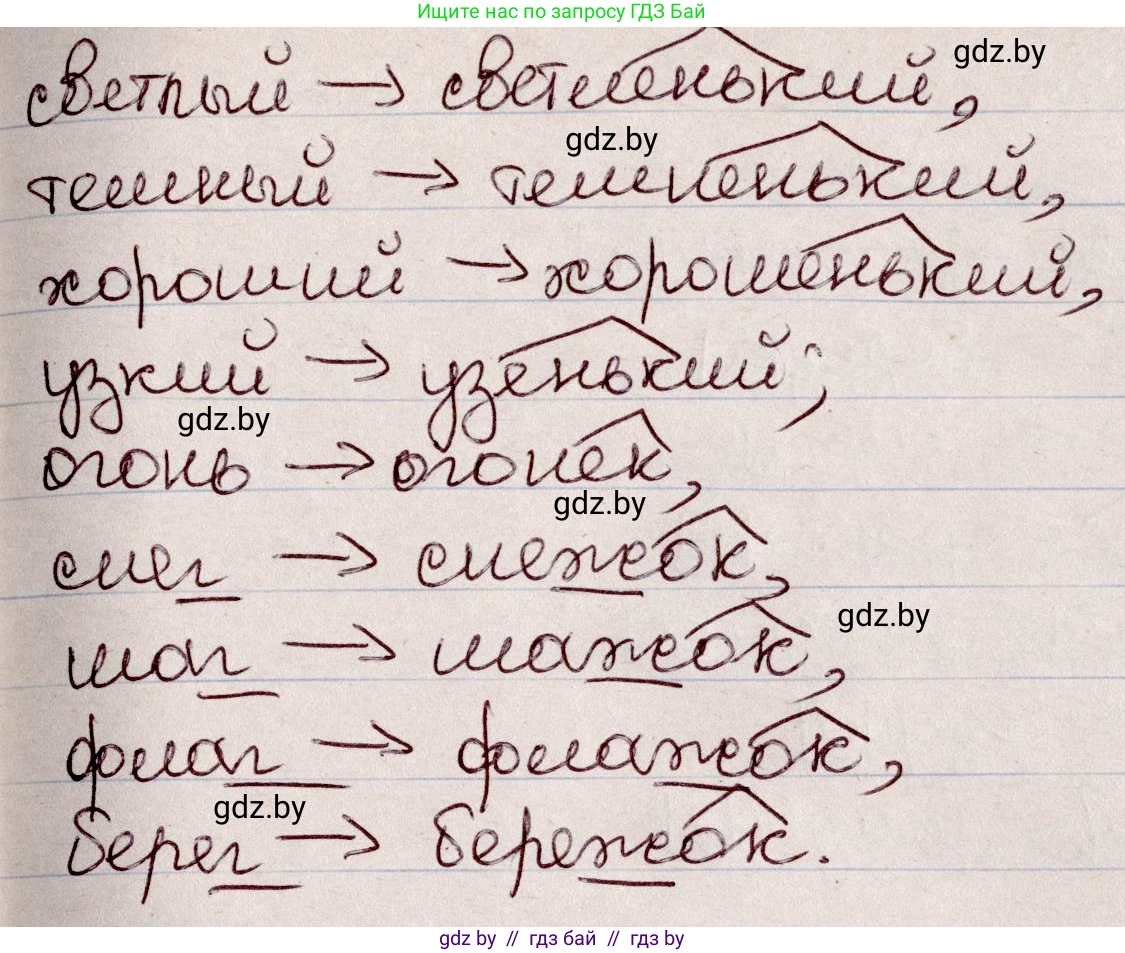 Ищите нас по запросу ГДЗ Бай
светлый → светленький,
gdz.by
темный → темненький,
gdz.by
хороший → хорошенький,
узкий → узенький;
gdz.by
огонь → огонек,
gdz.by
снег → снежок,
шаг → шажок,
gdz.by
флаг → флажок,
берег → бережок.
gdz.by
gdz by // гдз бай // гдз by